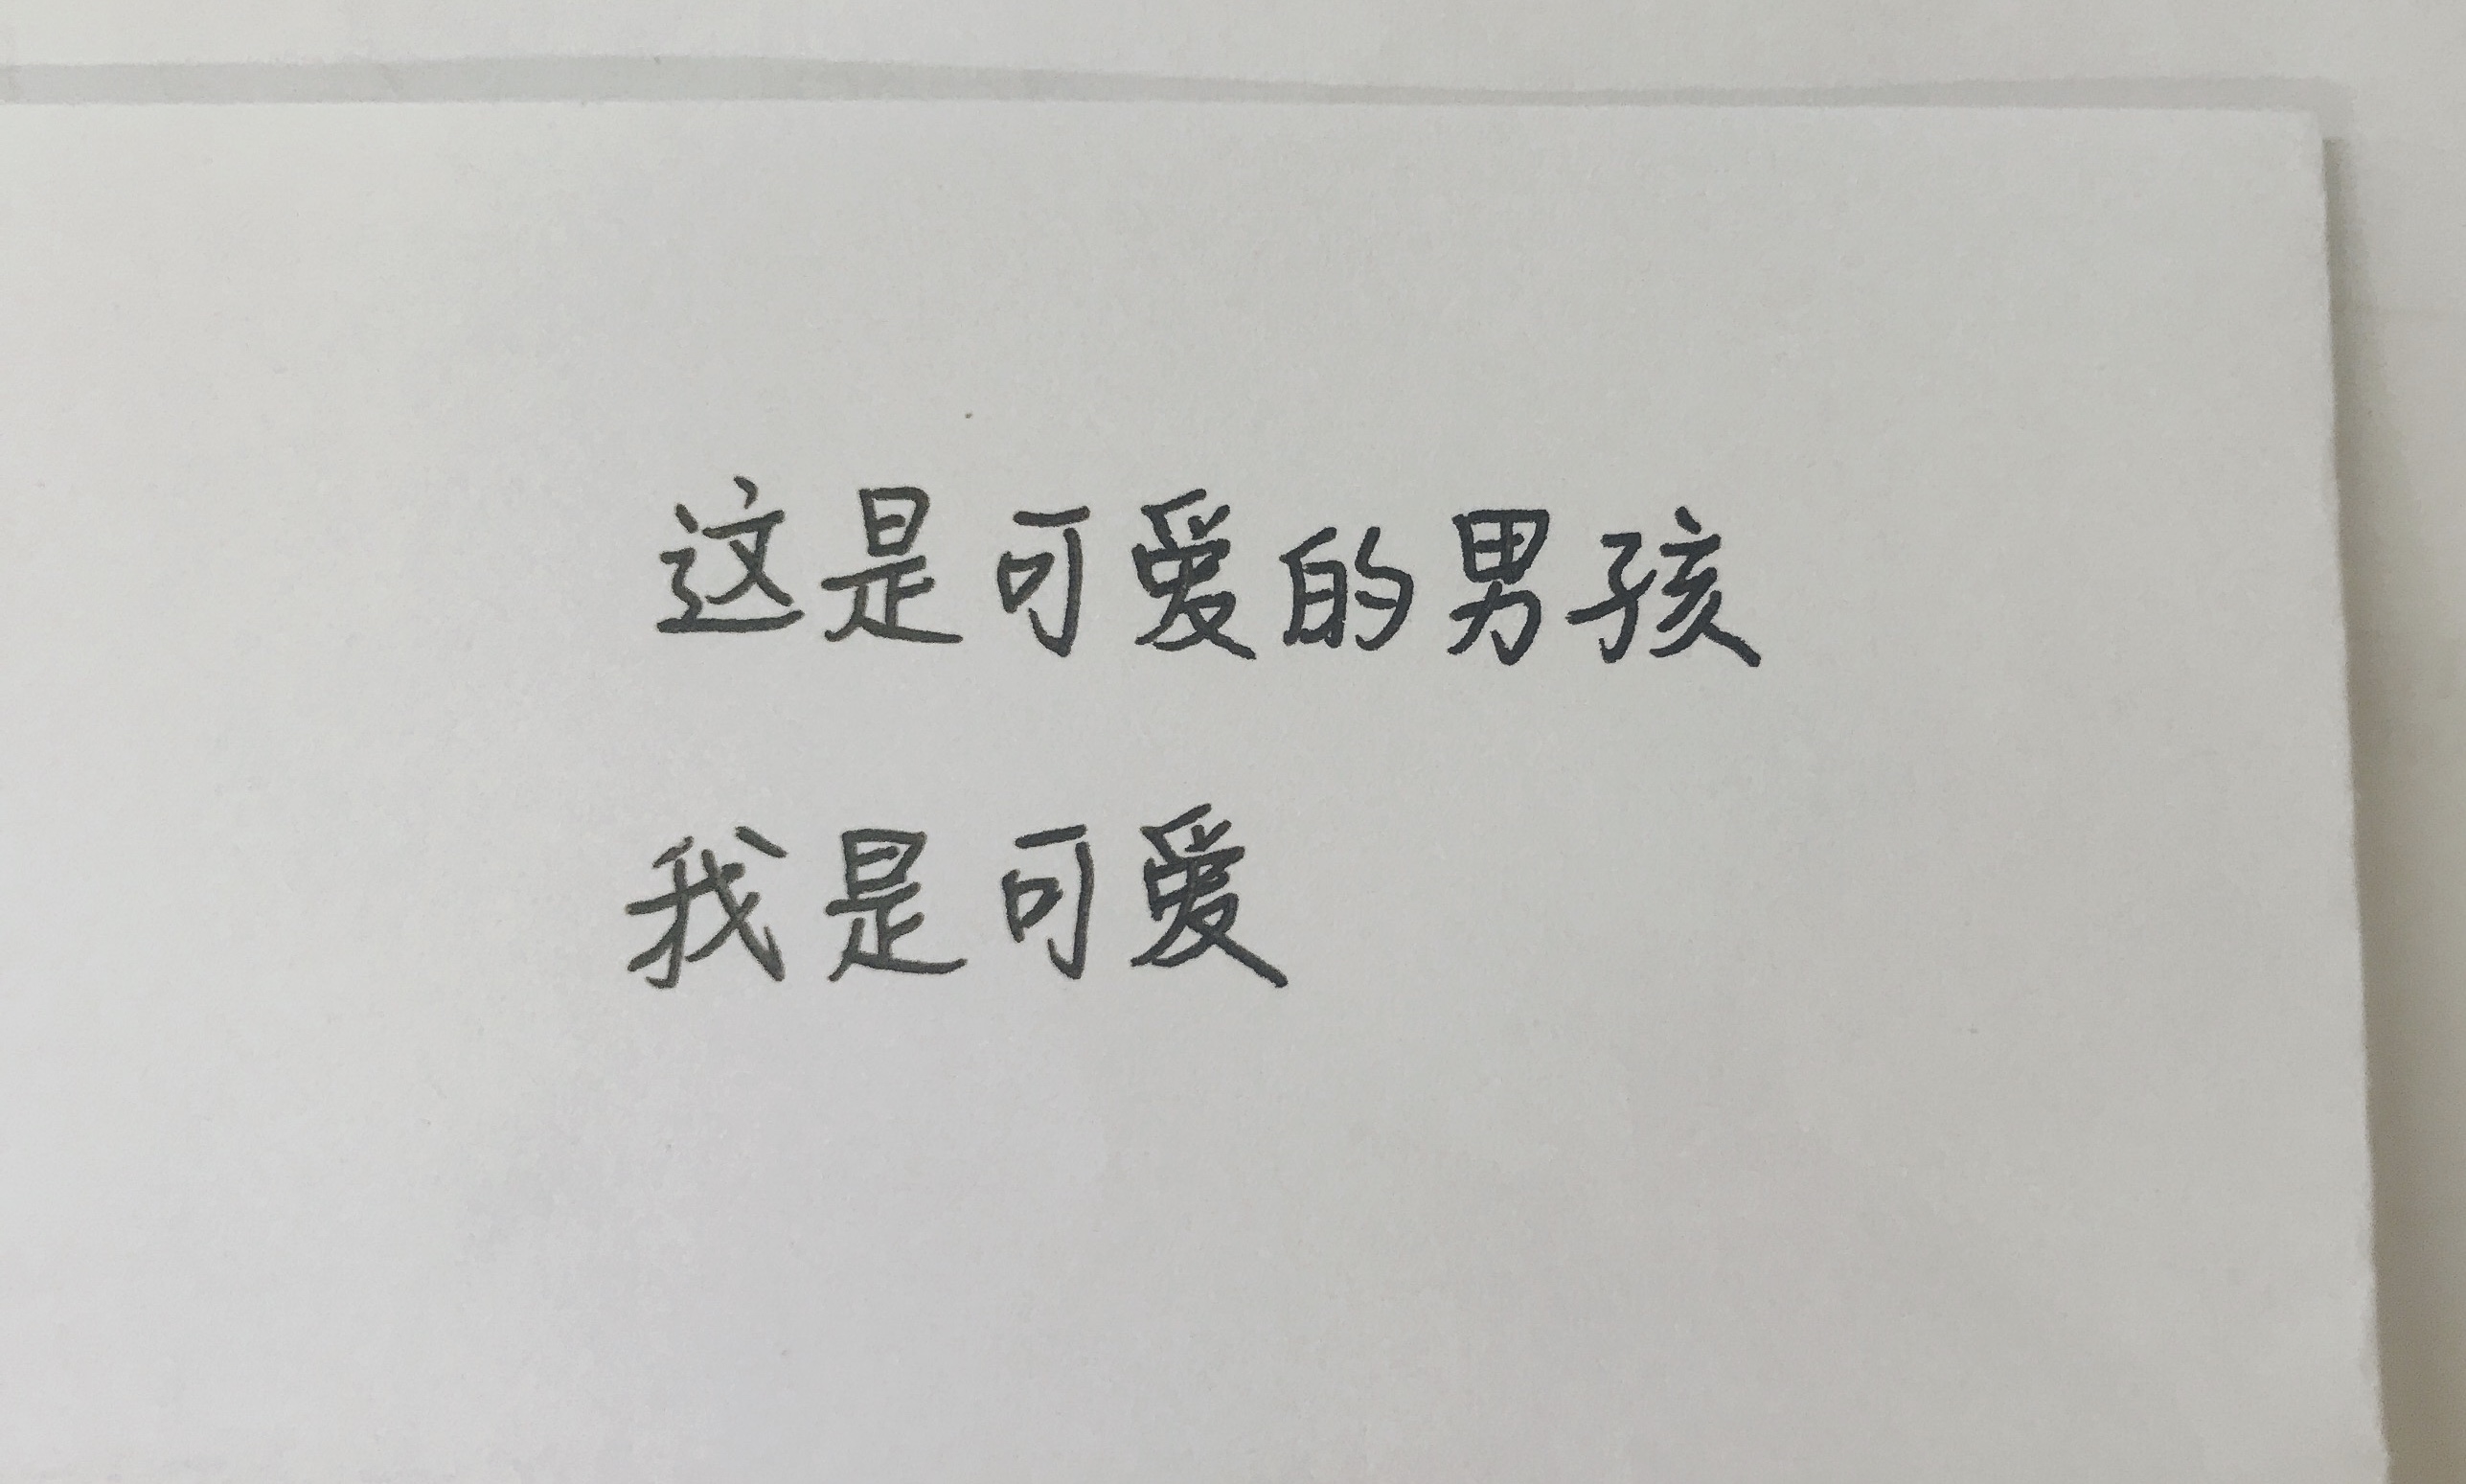 这是可爱的男孩
我是可爱